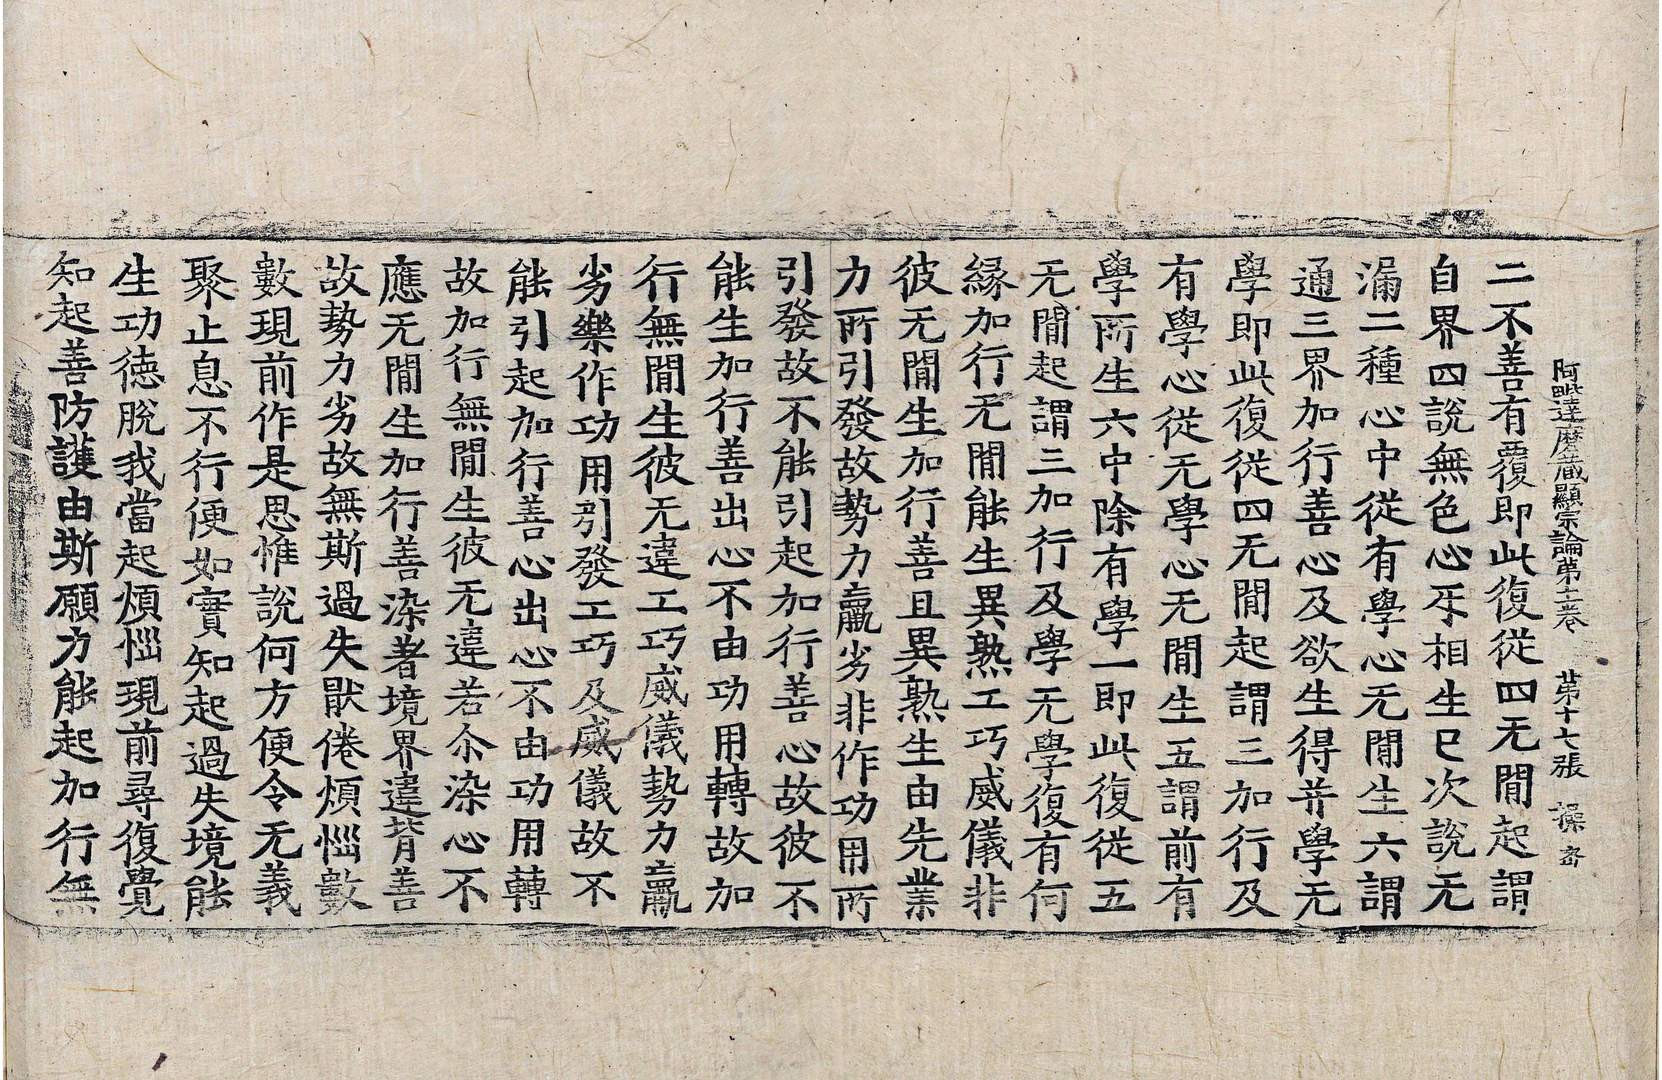 阿毗達磨藏顯宗論第十二卷　第十七張　操
二不善有覆即此復從四无閒起謂
自界四說無色心㸦相生已次說无
漏二種心中從有學心无閒生六謂
通三界加行善心及欲生得并學无
學即此復從四无閒起謂三加行及
有學心從无學心无閒生五謂前有
學所生六中除有學一即此復從五
无閒起謂三加行及學无學復有何
緣加行无閒能生異熟工巧威儀非
彼无閒生加行善且異熟生由先業
力所引發故勢力羸劣非作功用所
引發故不能引起加行善心故彼不
能生加行善出心不由功用轉故加
行無閒生彼无違工巧威儀勢力羸
劣樂作功用引發工巧及威儀故不
能引起加行善心出心不由功用轉
故加行無閒生彼无違若尒染心不
應无閒生加行善染著境界違背善
故勢力劣故無斯過失猒倦煩惱數
數現前作是思惟說何方便令无義
聚止息不行便如實知起過失境能
生功德脫我當起煩惱現前尋復覺
知起善防護由斯願力能起加行無